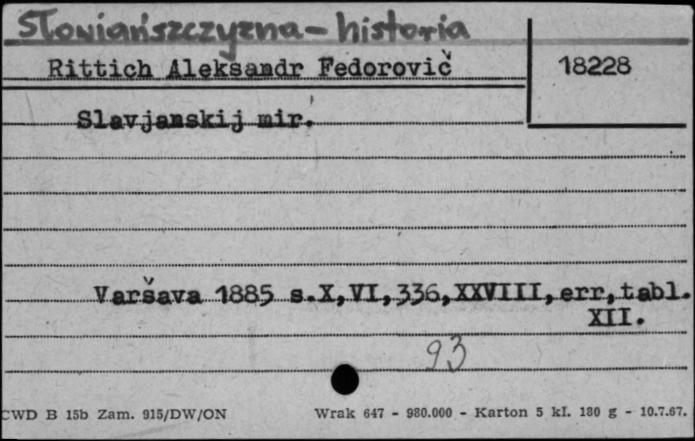 Słowiańszczyzna - historia
Rittich Aleksandr Fedorovič
18228
Slavjanskij mir.
Varšava 1885 s.X,VI,336,XXVIII,err,tabl.
XII.
93
CWD B 15b Zam. 915/DW/ON
Wrak 647 - 980.000 - Karton 5 kl. 180 g - 10.7.67.